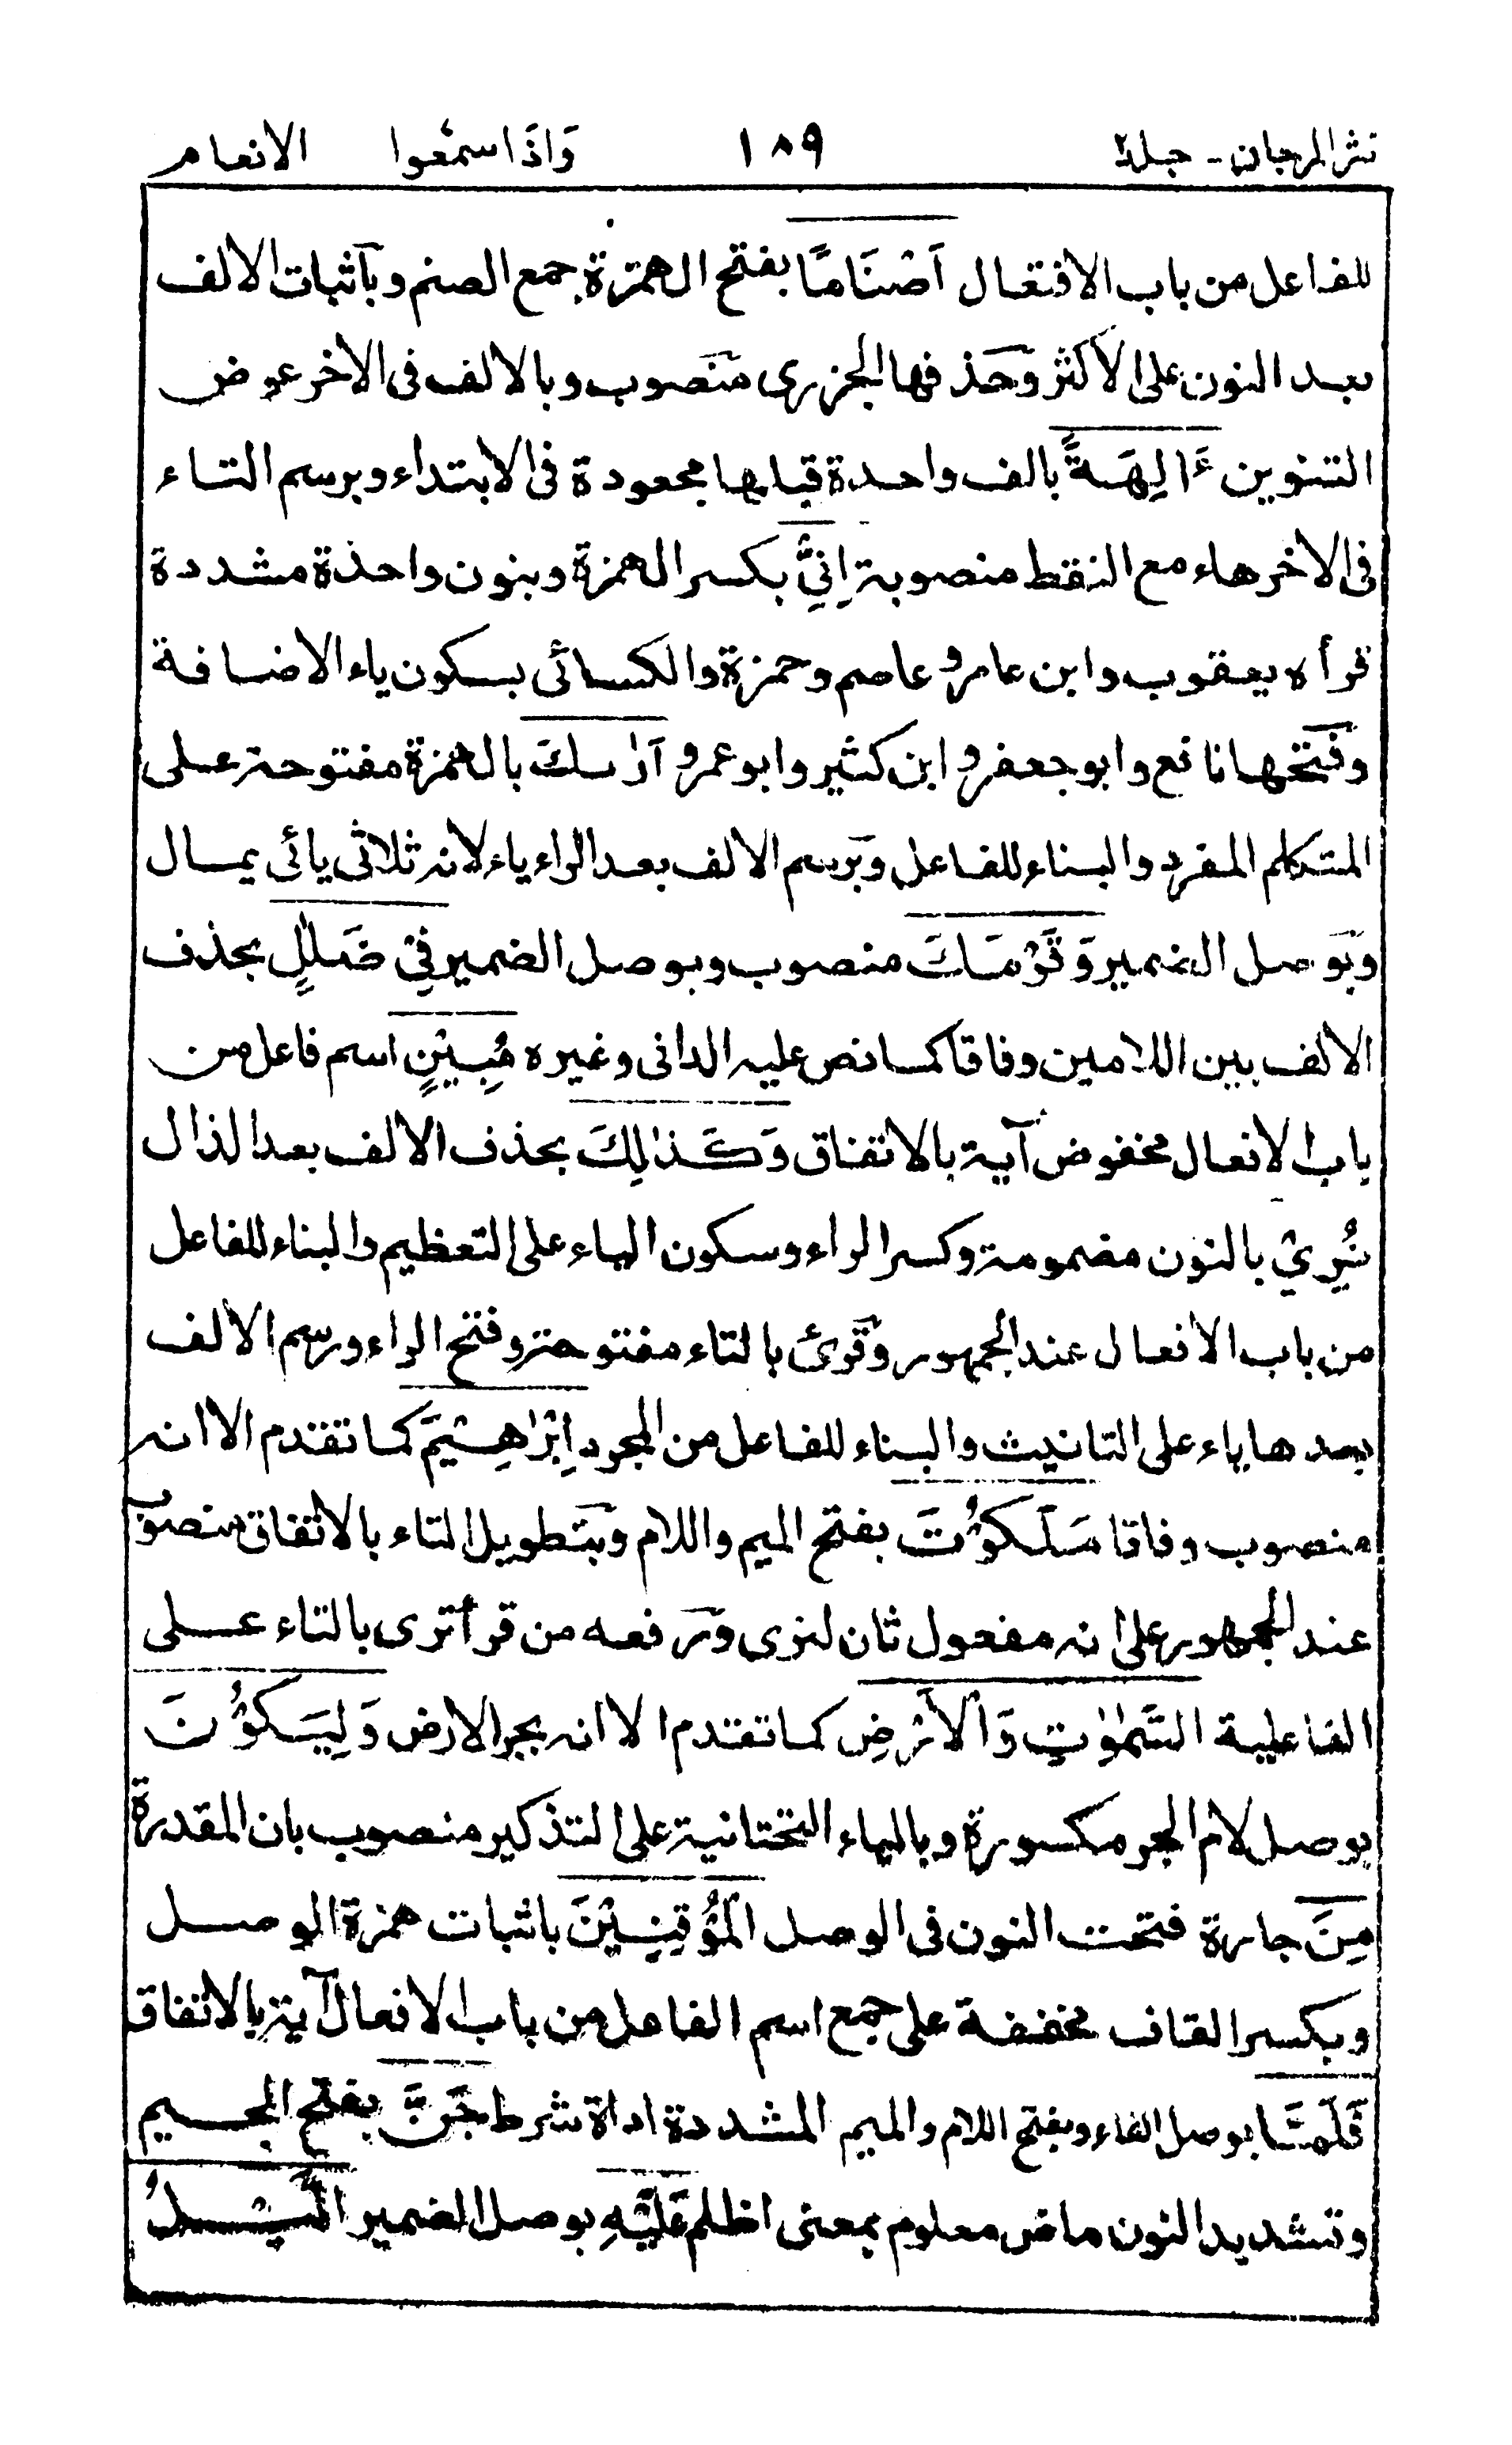 نثر المرجان - جلد٢ ١٨٩ وَاِذَا سمعُوا الانعام
للفاعل من باب الافتعال اَصْنَامًا بفتح الهمزة جمع الصنم وبآثبات الالف
بعد النون على الاكثر وحذفها الجزرى منصوب وبالالف فى الاخر عوض
التنوين ءَالِهَةً بالف واحدة قبلها مجعودة فى الابتداء وبرسم التاء
فى الاخر هاء مع النقط منصوبة اِنِّىْ بكسر الهمزة وبنون واحدة مشددة
قرأه يعقوب وابن عامر و عاصم وحمزة والكسائى بسكون ياء الاضافة
وفتحها نافع وابو جعفر و ابن كثير وابو عمرو اَرٰىكَ بالهمزة مفتوحة على
المتكلم المفرد والبناء للفاعل وبرسم الالف بعد الراء ياء لانه ثلاثى يائى يمال
وبوصل الضمير وَقَوْمَكَ منصوب وبوصل الضمير فِىْ ضَلٰلٍ بحذف
الالف بين اللامين وفاقا كما نص عليه الدانى وغيره مُّبِيْنٍ اسم فاعل من
باب الافعال مخفوض آية بالاتفاق وَكَذٰلِكَ بحذف الالف بعد الذال
نُرِىْ بالنون مضمومة وكسر الراء وسكون الياء على التعظيم والبناء للفاعل
من باب الافعال عند الجمهور وقرئ بالتاء مفتوحة وفتح الراء ورسم الالف
بعدها ياء على التانيث والبناء للفاعل من المجرد اِبْرٰهِيْمَ كما تقدم الا انه
منصوب وفاقا مَلَكُوْتَ بفتح الميم واللام وبتطويل التاء بالاتفاق منصوب
عند الجمهور على انه مفعول ثان لنرى ورفعه من قرأ ترى بالتاء على
الفاعلية السَّمٰوٰتِ وَالْاَرْضِ كما تقدم الا انه بجر الارض وَلِيَكُوْنَ
بوصل لام الجر مكسورة وبالياء التحتانية على التذكير منصوب بان المقدرة
مِنَ جارة فتحت النون فى الوصل الْمُوْقِنِيْنَ باثبات همزة الوصل
وبكسر القاف مخففة على جمع اسم الفاعل من باب الافعال آية بالاتفاق
فَلَمَّا بوصل الفاء وبفتح اللام والميم المشددة اداة شرط جَنَّ بفتح الجيم
وتشديد النون ماض معلوم بمعنى اظلم عَلَيْهِ بوصل الضمير الَّيْلُ